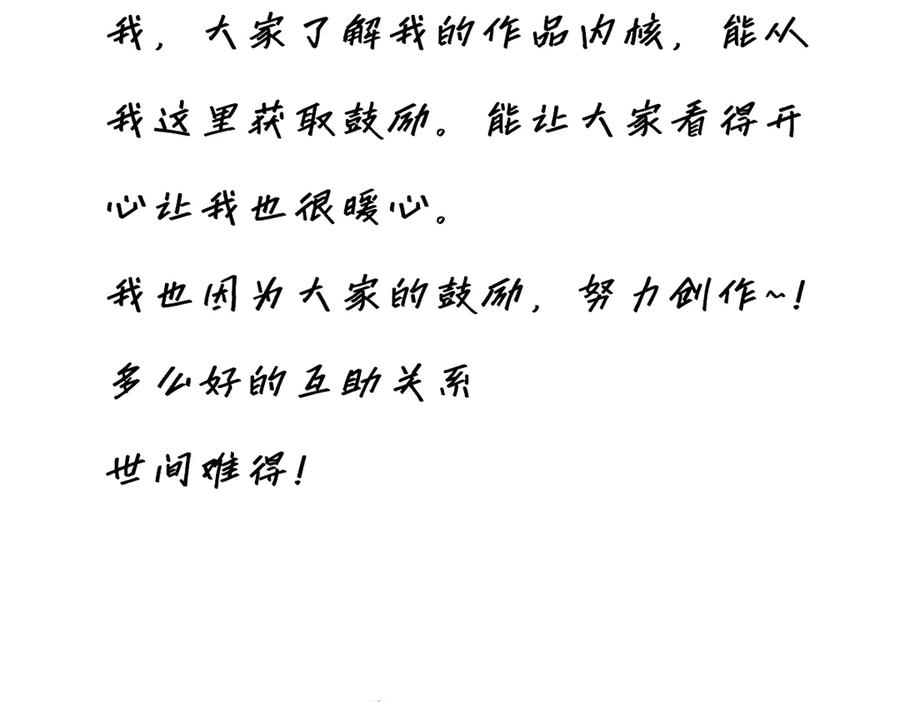 我，大家了解我的作品内核，能从
我这里获取鼓励。能让大家看得开
心让我也很暖心。
我也因为大家的鼓励，努力创作~!
多么好的互助关系
世间难得!